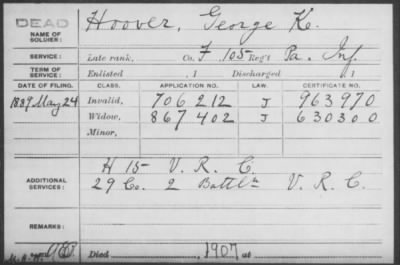 DEAD
NAME OF SOLDIER: Hoover, George K.
SERVICE: Late rank, Co. F 105 Reg't Pa. Inf.
TERM OF SERVICE: Enlisted , 1 Discharged , 1
DATE OF FILING. CLASS. APPLICATION NO. LAW. CERTIFICATE NO.
1889 May 24 Invalid, 706212 J 963970
Widow, 867402 J 630300
Minor,
H 15- V. R. C.
ADDITIONAL SERVICES: 29 Co. 2 Battl'n V. R. C.
REMARKS:
Died , 1907 at